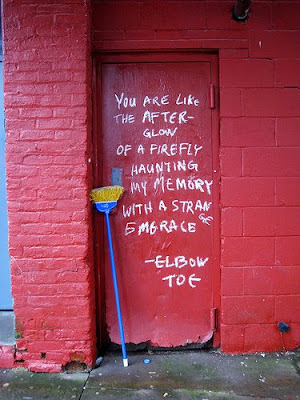 YOU ARE LIKE
THE AFTER-
GLOW
OF A FIREFLY
HAUNTING
MY MEMORY
WITH A STRANGE
EMBRACE
-ELBOW
TOE